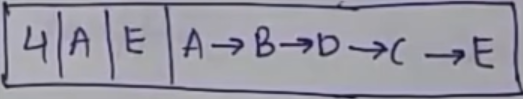 4 | A | E | A → B → D → C → E